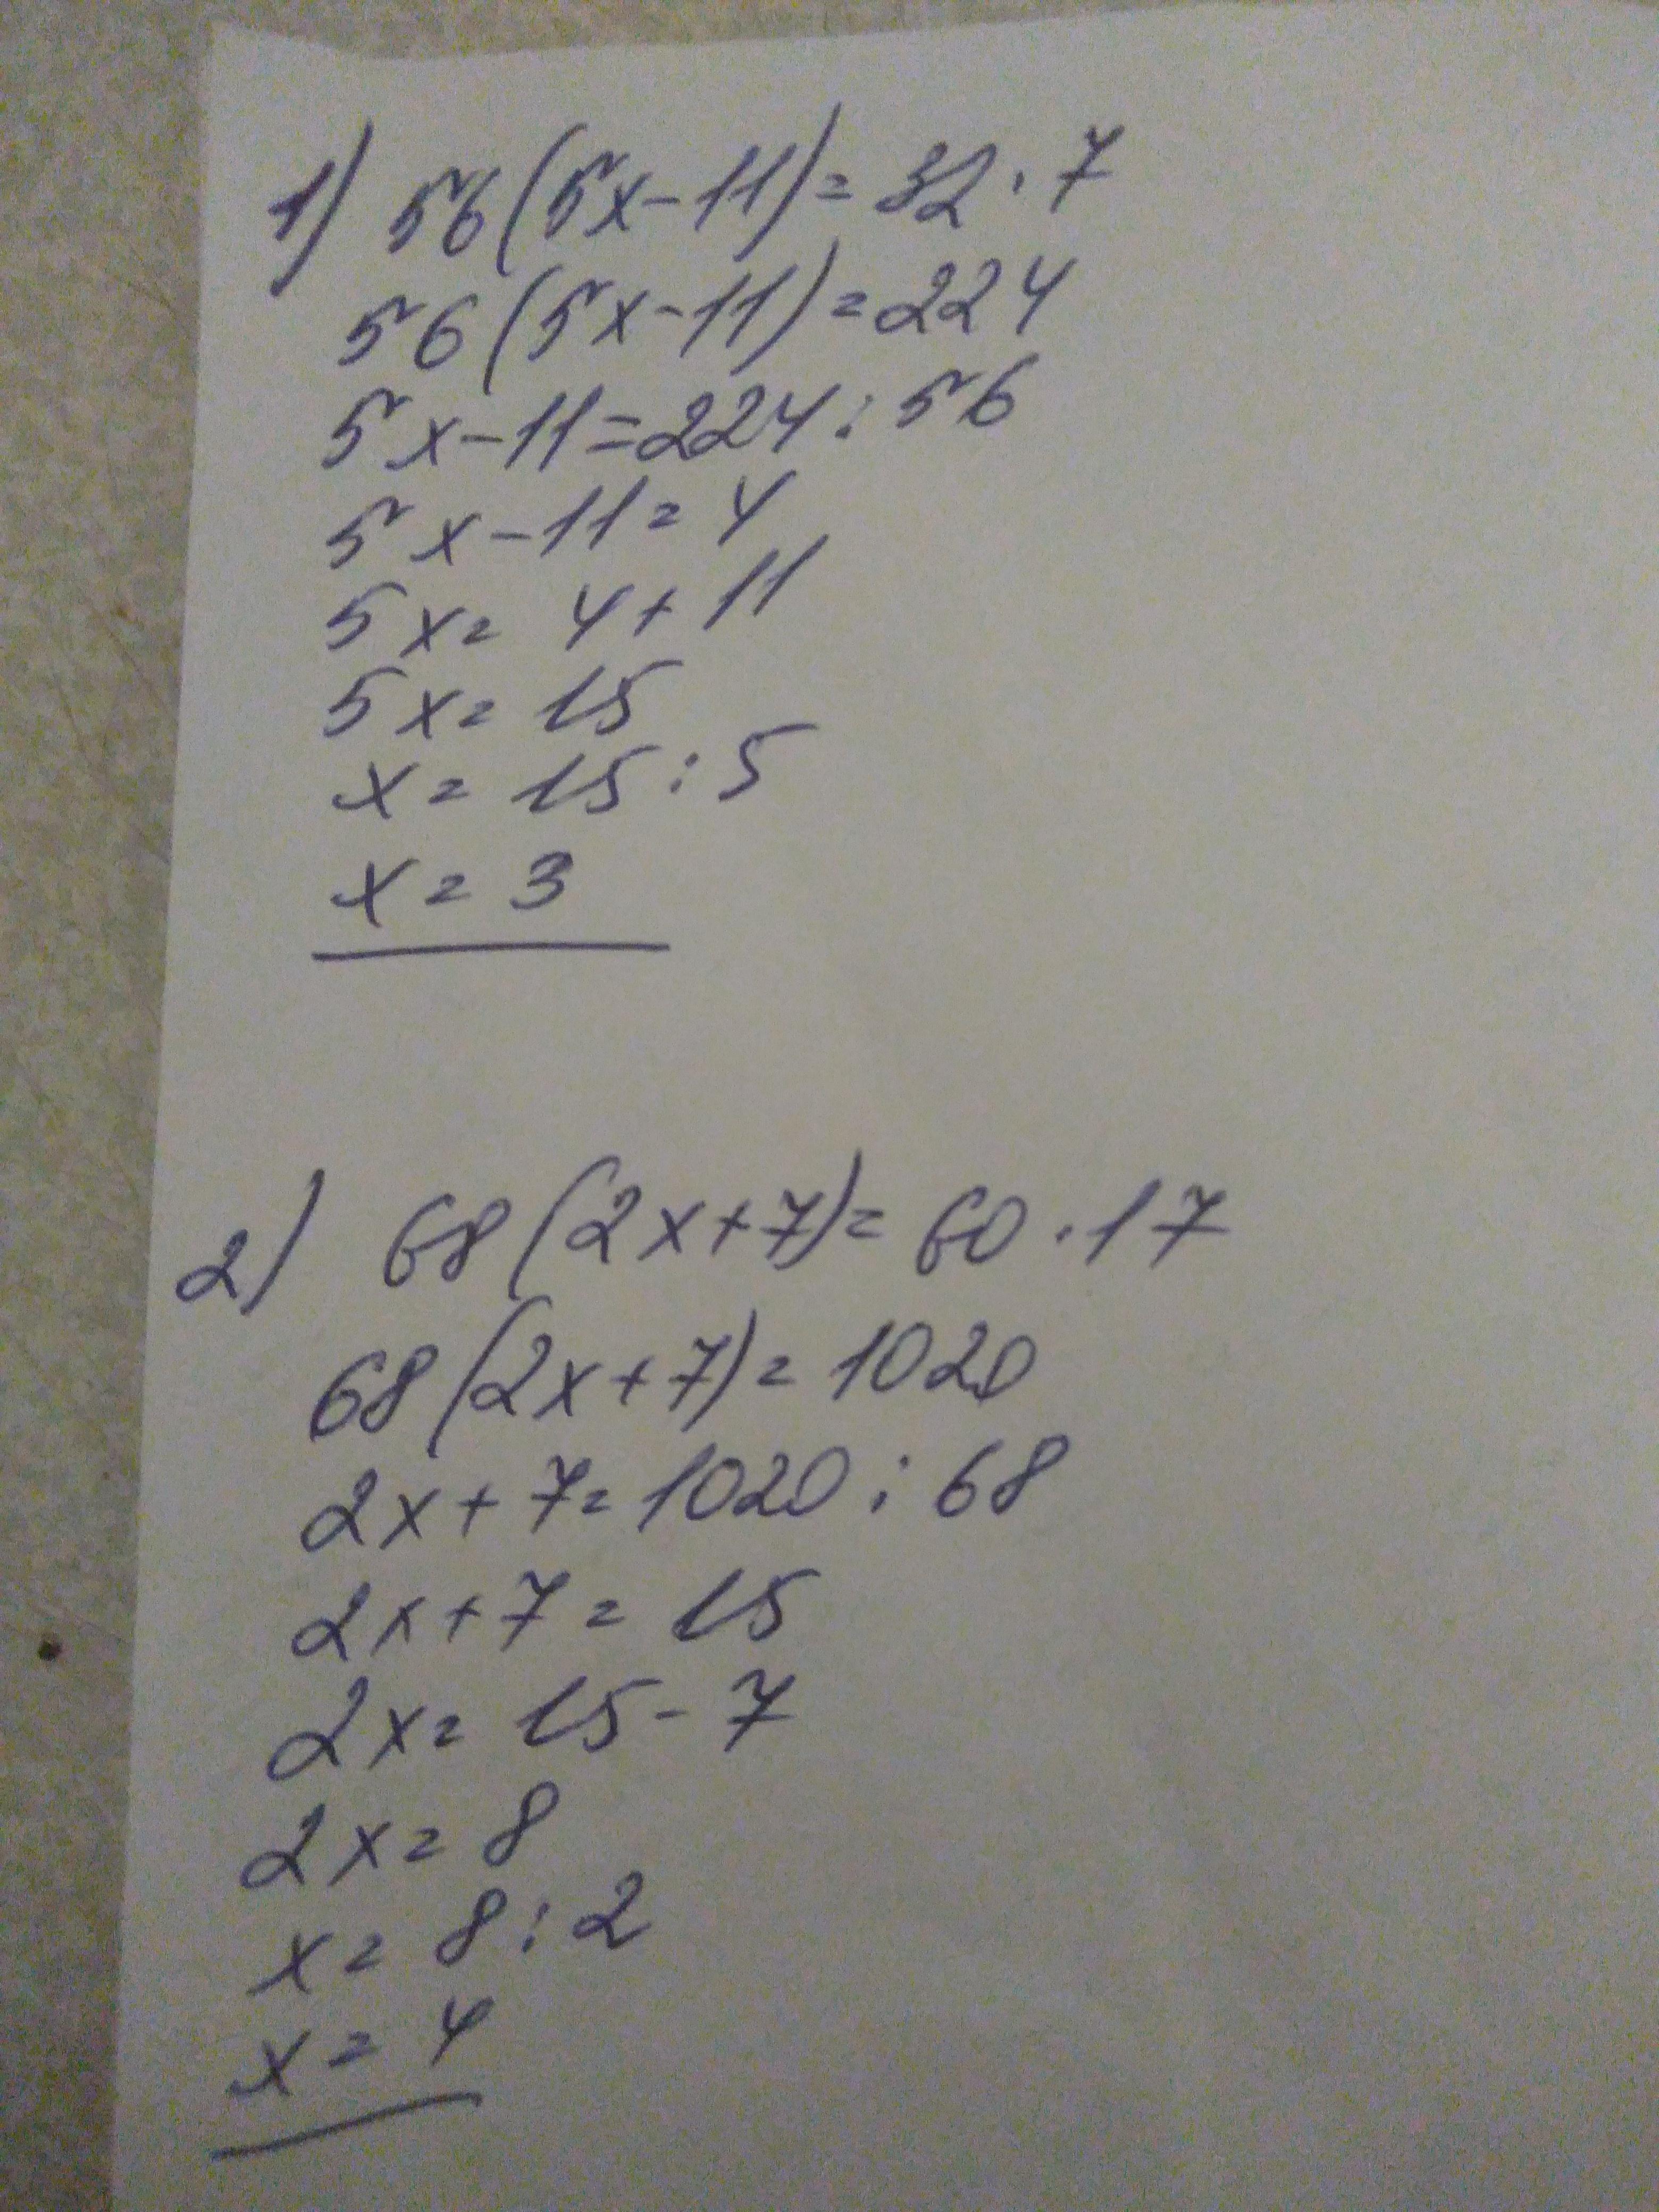 1) 56(5x-11)=32·7
56(5x-11)=224
5x-11=224:56
5x-11=4
5x=4+11
5x=15
x=15:5
x=3
2) 68(2x+7)=60·17
68(2x+7)=1020
2x+7=1020:68
2x+7=15
2x=15-7
2x=8
x=8:2
x=4